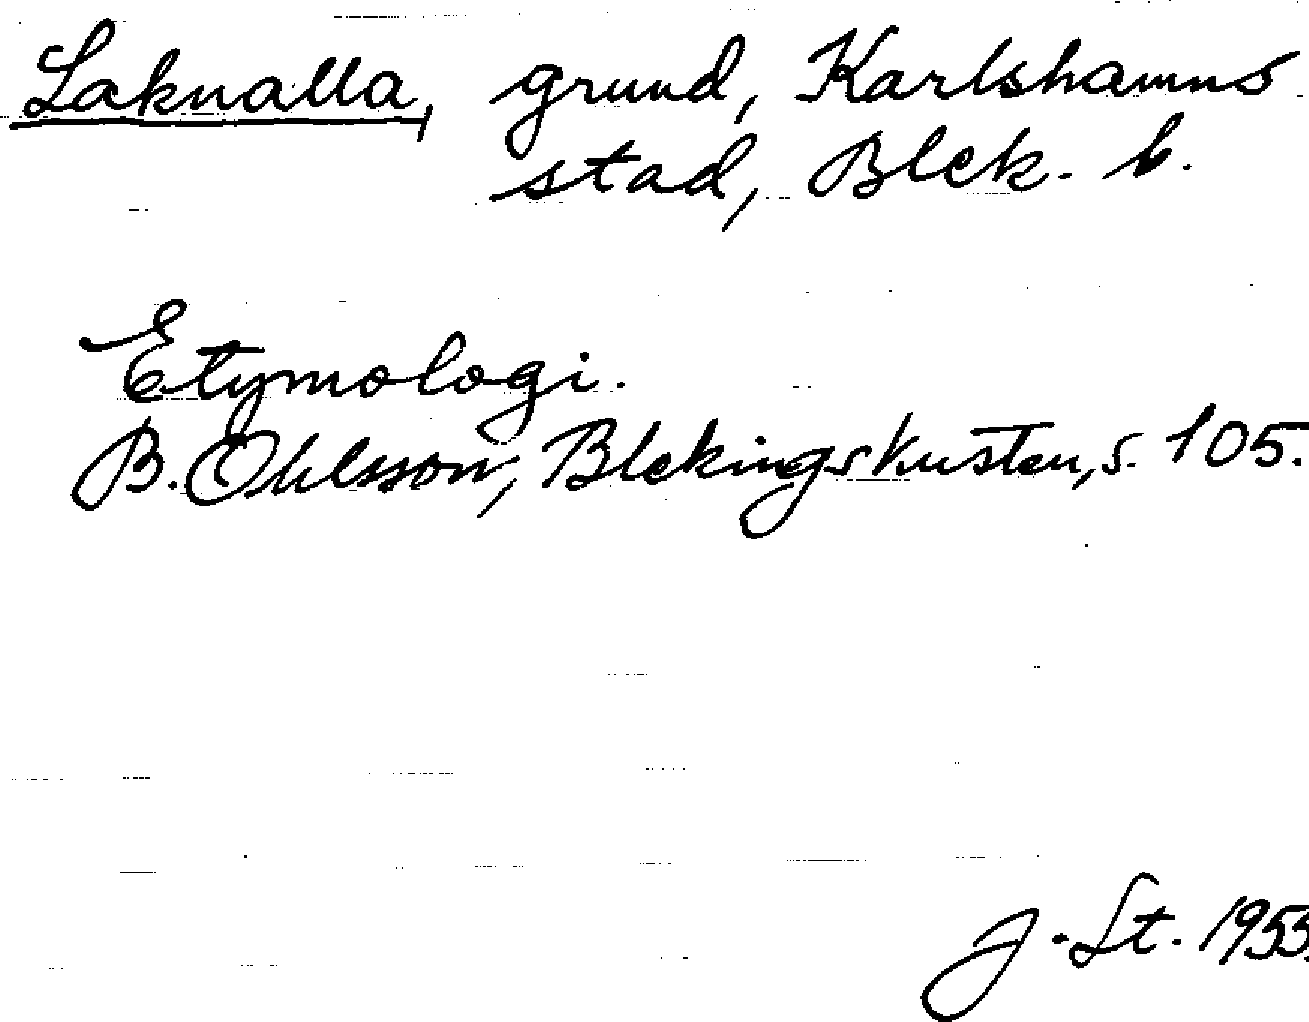 Laknalla, grund, Karlshamns
stad, Blek. l.
Etymologi.
B. Ohlsson, Blekingskusten, s. 105.
J. St. 1953.